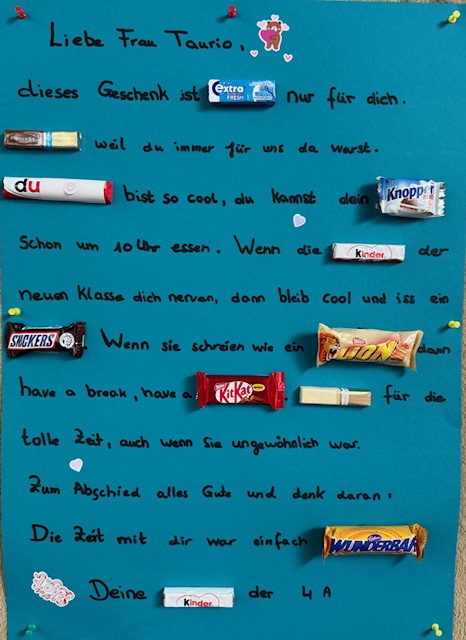 Liebe Frau Taurio,
dieses Geschenk ist extra FRESH nur für dich.
weil du immer für uns da warst.
du bist so cool, du kannst dein Knoppers
schon um 10 Uhr essen. Wenn die kinder der
neuen Klasse dich nerven, dann bleib cool und iss ein
SNICKERS Wenn sie schreien wie ein LION dann
have a break, have a KitKat. für die
tolle Zeit, auch wenn sie ungewöhnlich war.
Zum Abschied alles Gute und denk daran:
Die Zeit mit dir war einfach WUNDERBAR
Deine kinder der 4A